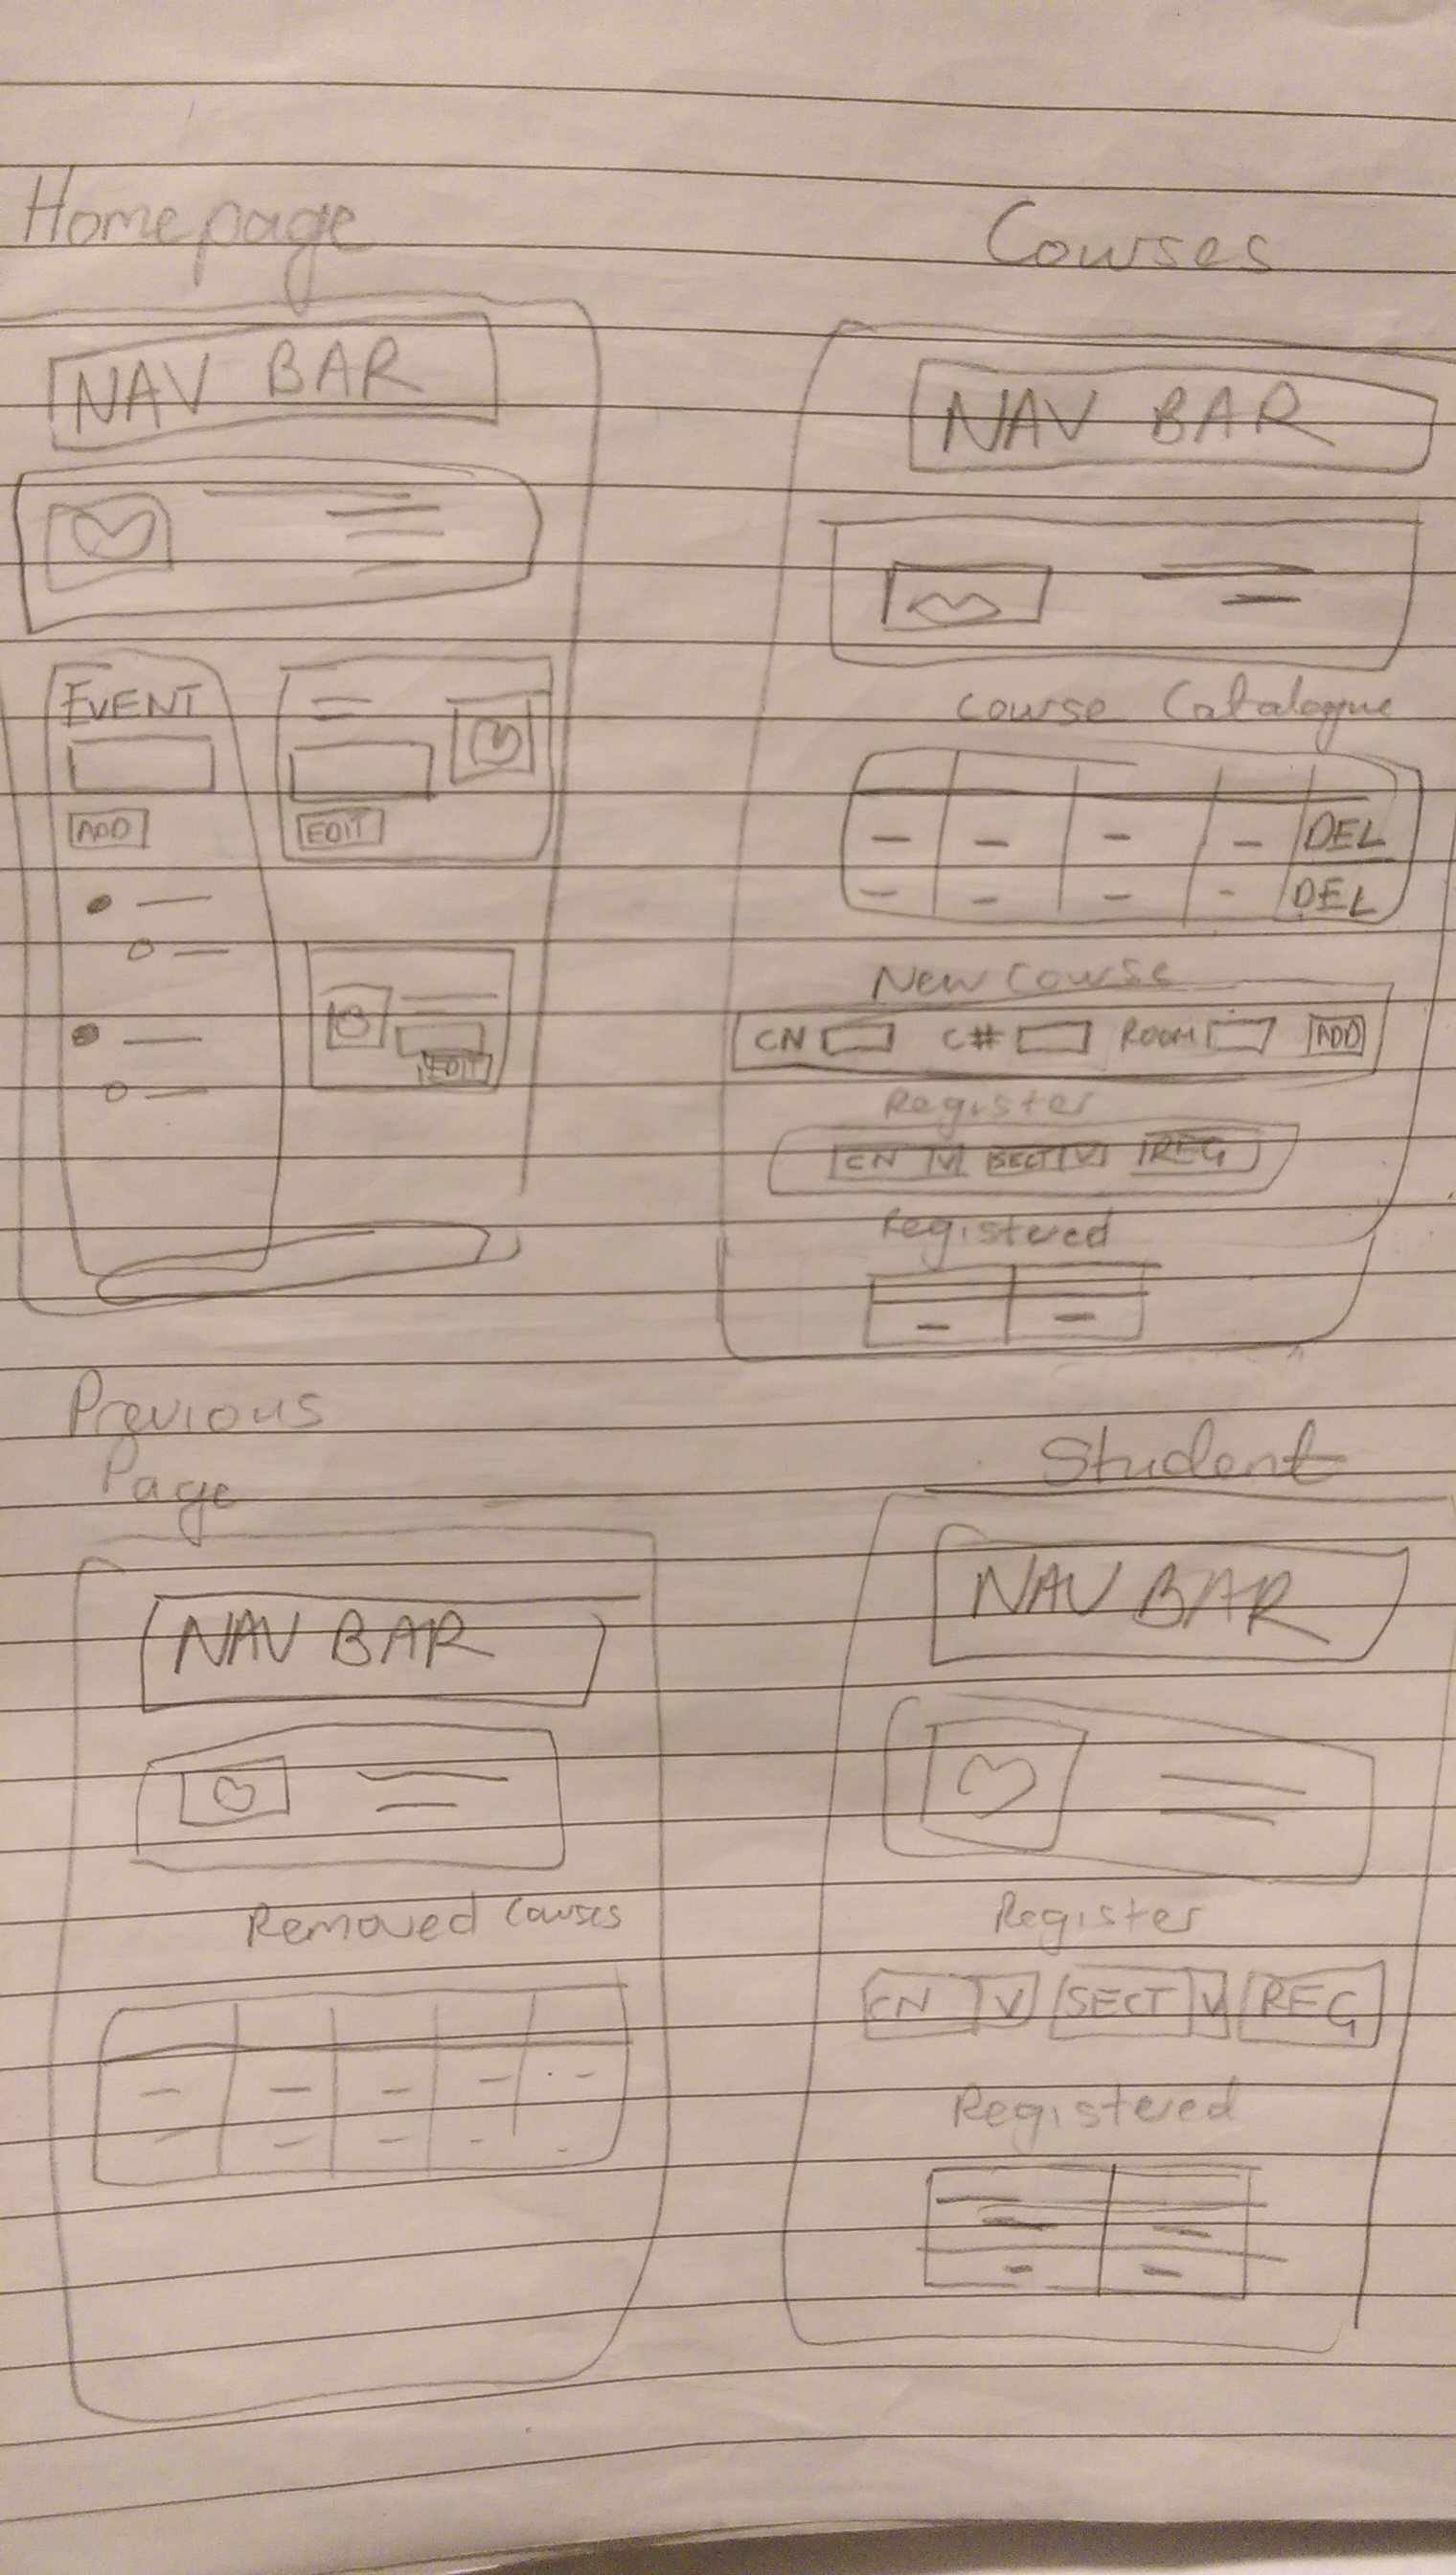 Homepage
NAV BAR
EVENT
ADD
EDIT
EDIT
Courses
NAV BAR
Course Catalogue
DEL
DEL
New Course
CN C# ROOM ADD
Register
CN V SECT V REG
Registered
Previous
Page
NAV BAR
Removed Courses
Student
NAV BAR
Register
CN V SECT V REG
Registered